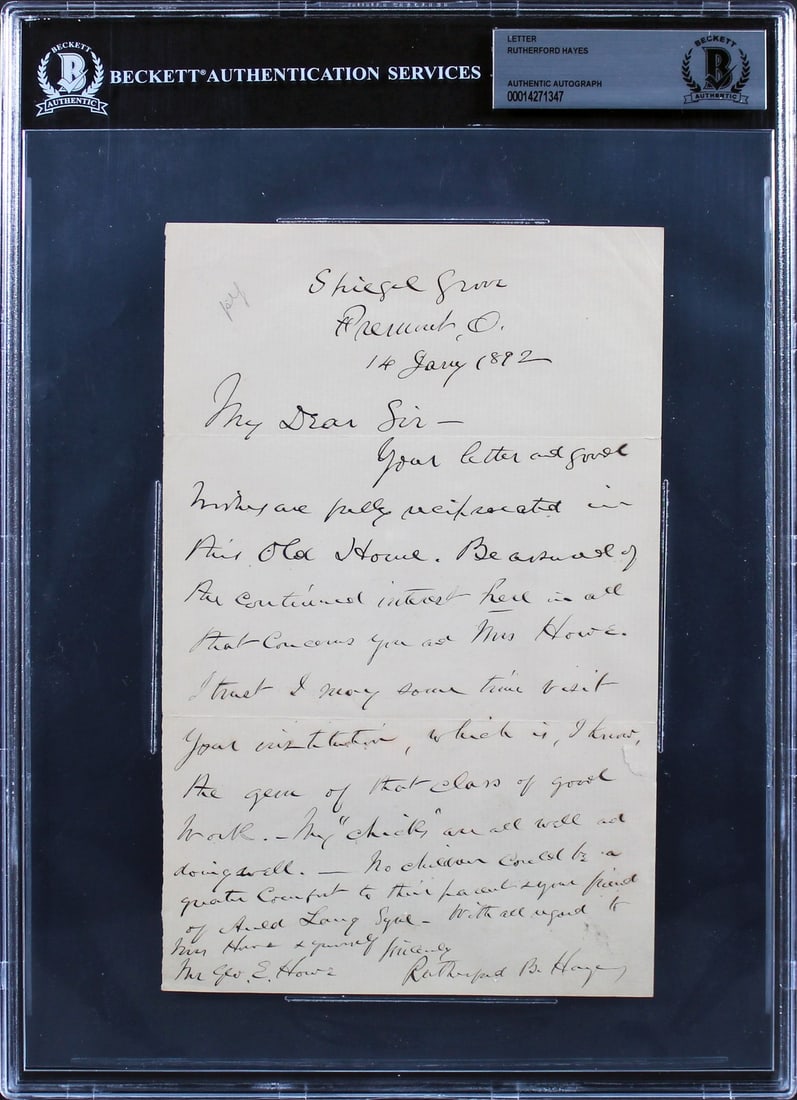 BECKETT
B
AUTHENTIC
BECKETT® AUTHENTICATION SERVICES
LETTER
RUTHERFORD HAYES
AUTHENTIC AUTOGRAPH
00014271347
BECKETT
B
AUTHENTIC
Spiegel Grove
Fremont, O.
14 Jany 1892
My Dear Sir —
Your letter and good
wishes are fully reciprocated in
this Old Home. Be assured of
the continued interest here in all
that concerns you and Mrs Howe.
I trust I may some time visit
your institution, which is, I know,
the gem of that class of good
work. — My "chicks" are all well and
doing well. — No children could be a
greater comfort to their parent & your friend
of Auld Lang Syne — With all regard to
Mrs Howe & yourself sincerely
Mr Geo. E. Howe Rutherford B. Hayes